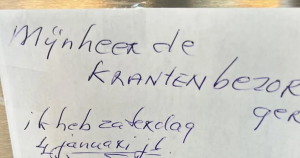 Mijnheer de
KRANTENbezor
ger
ik heb zaterdag
4 januari jl.